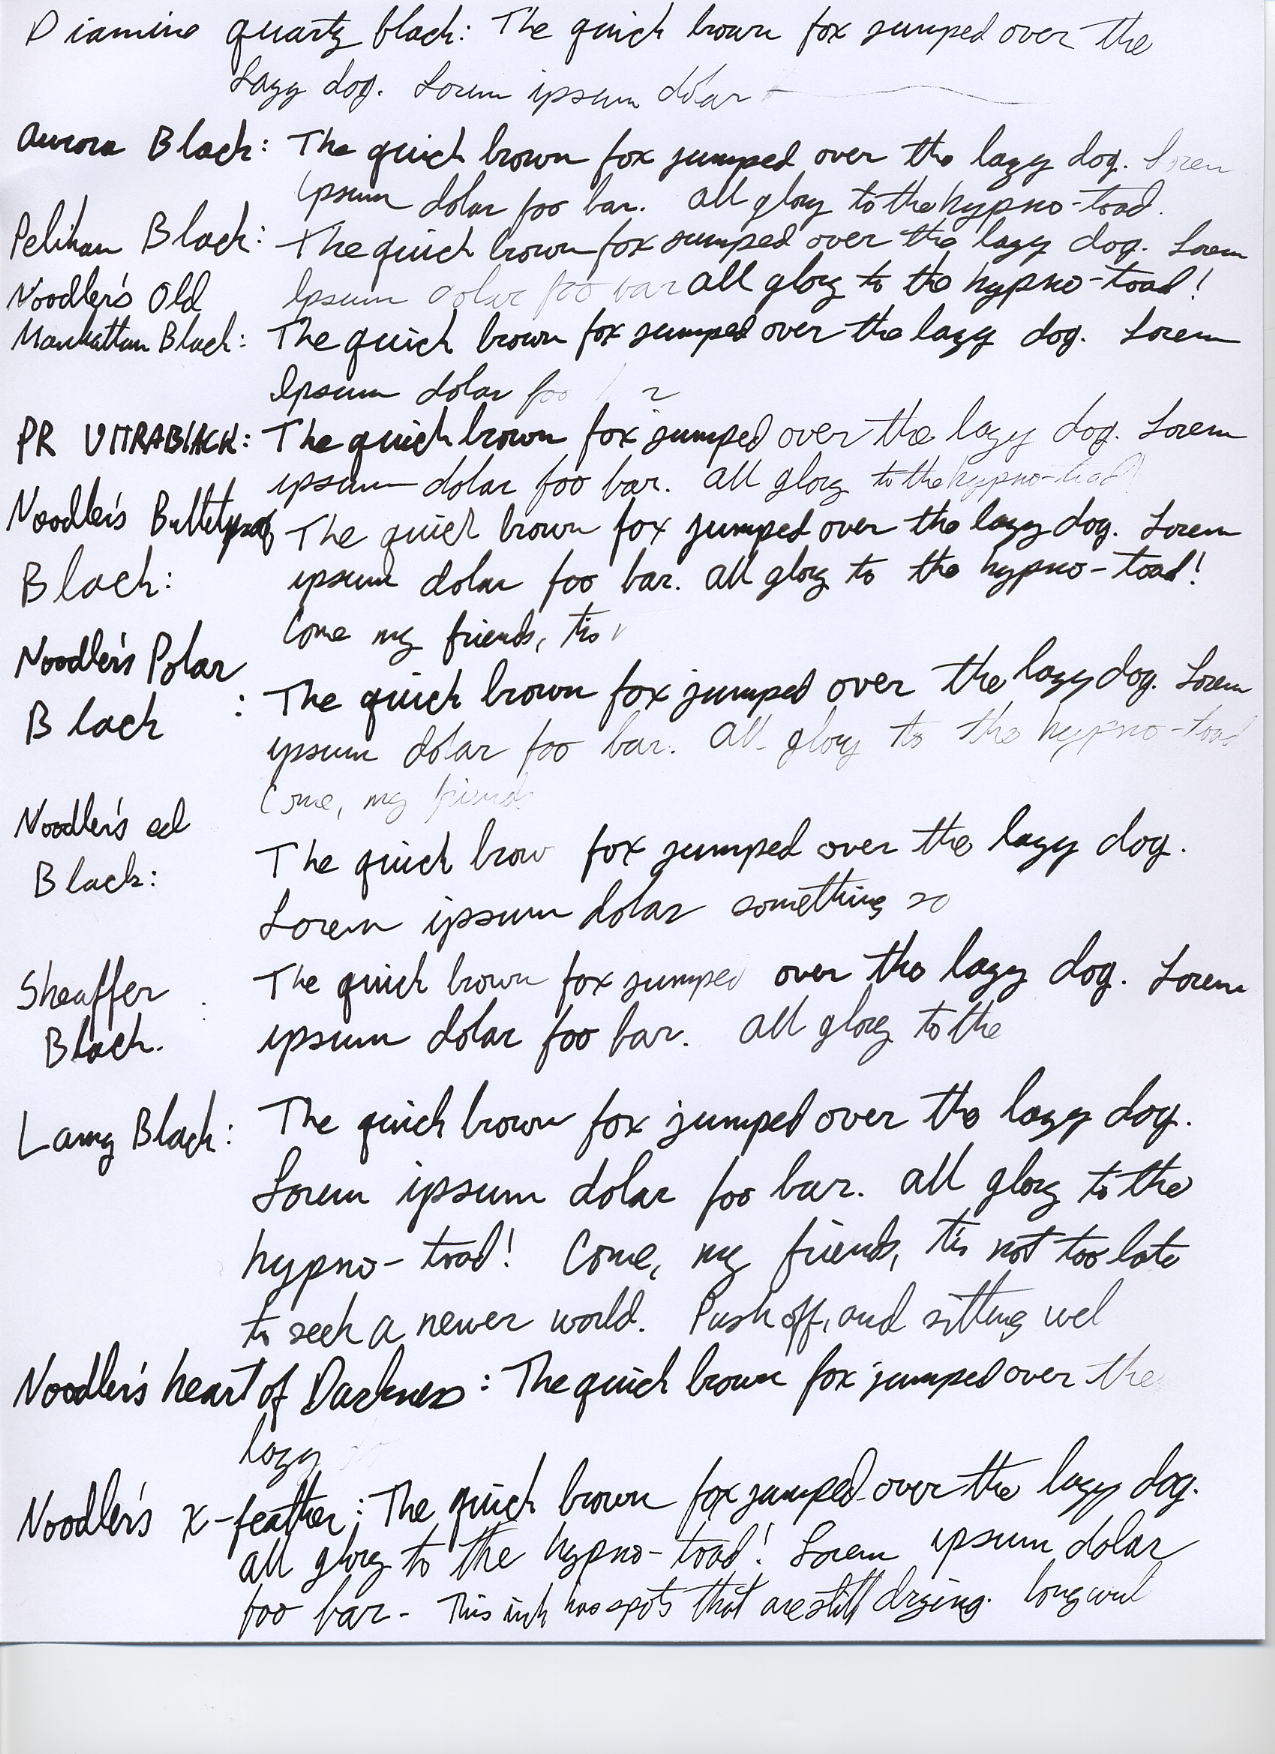 Diamine quartz black: The quick brown fox jumped over the
lazy dog. Lorem ipsum dolar
Aurora Black: The quick brown fox jumped over the lazy dog. Lorem
ipsum dolar foo bar. All glory to the hypno-toad.
Pelikan Black: The quick brown fox jumped over the lazy dog. Lorem
Noodler's Old ipsum dolar foo bar all glory to the hypno-toad!
Manhattan Black: The quick brown fox jumped over the lazy dog. Lorem
ipsum dolar foo
PR ULTRABLACK: The quick brown fox jumped over the lazy dog. Lorem
ipsum dolar foo bar. All glory to the hypno-toad!
Noodler's Bulletproof The quick brown fox jumped over the lazy dog. Lorem
Black: ipsum dolar foo bar. All glory to the hypno-toad!
Come my friends, tis
Noodler's Polar
Black : The quick brown fox jumped over the lazy dog. Lorem
ipsum dolar foo bar. All glory to the hypno-toad
Come, my friends
Noodler's eel
Black: The quick brow fox jumped over the lazy dog.
Lorem ipsum dolar something so
Sheaffer : The quick brown fox jumped over the lazy dog. Lorem
Black. ipsum dolar foo bar. All glory to the
Lamy Black: The quick brown fox jumped over the lazy dog.
Lorem ipsum dolar foo bar. All glory to the
hypno-toad! Come, my friends, tis not too late
to seek a newer world. Push off, and sitting wel
Noodler's heart of Darkness: The quick brown fox jumped over the
lazy
Noodler's X-feather: The quick brown fox jumped over the lazy dog.
all glory to the hypno-toad! Lorem ipsum dolar
foo bar - This ink has spots that are still drying.